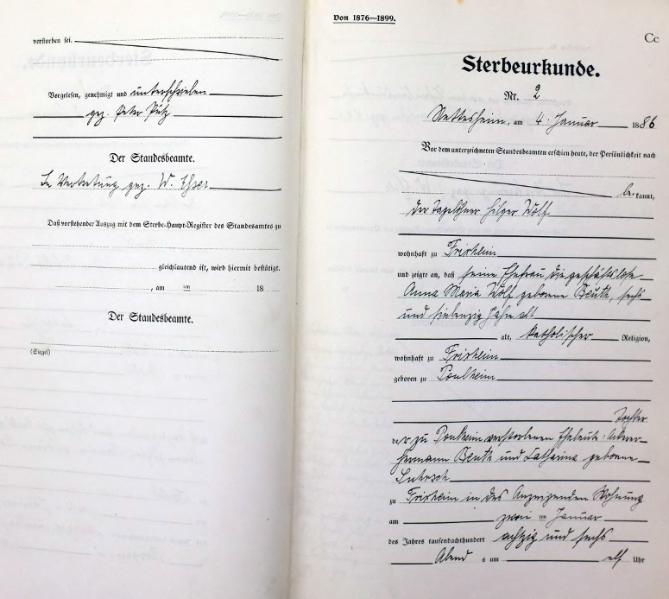 verstorben sei.
Vorgelesen, genehmigt und unterschrieben
gez. Peter Pütz
Der Standesbeamte.
In Vertretung gez. W. Esser
Daß vorstehender Auszug mit dem Sterbe-Haupt-Register des Standesamtes zu
gleichlautend ist, wird hiermit bestätigt.
, am ten 18
Der Standesbeamte.
(Siegel)
Von 1876—1899.
Cc
Sterbeurkunde.
Nr. 2
Nettesheim, am 4. Januar 1886
Vor dem unterzeichneten Standesbeamten erschien heute, der Persönlichkeit nach
be kannt,
der Tagelöhner Hilger Wolf
wohnhaft zu Frixheim
und zeigte an, daß seine Ehefrau die geschäftslose
Anna Maria Wolf geborene Beuth, sechs
und siebenzig Jahre alt
alt, katholischer Religion,
wohnhaft zu Frixheim
geboren zu Poulheim
Tochter
der zu verstorbenen Eheleute Ackerer
Hermann Beuth und Catharina geborene
zu Frixheim in des Anzeigenden Wohnung
am zwei ten Januar
des Jahres tausendachthundert achtzig und sechs
Abend s um elf Uhr